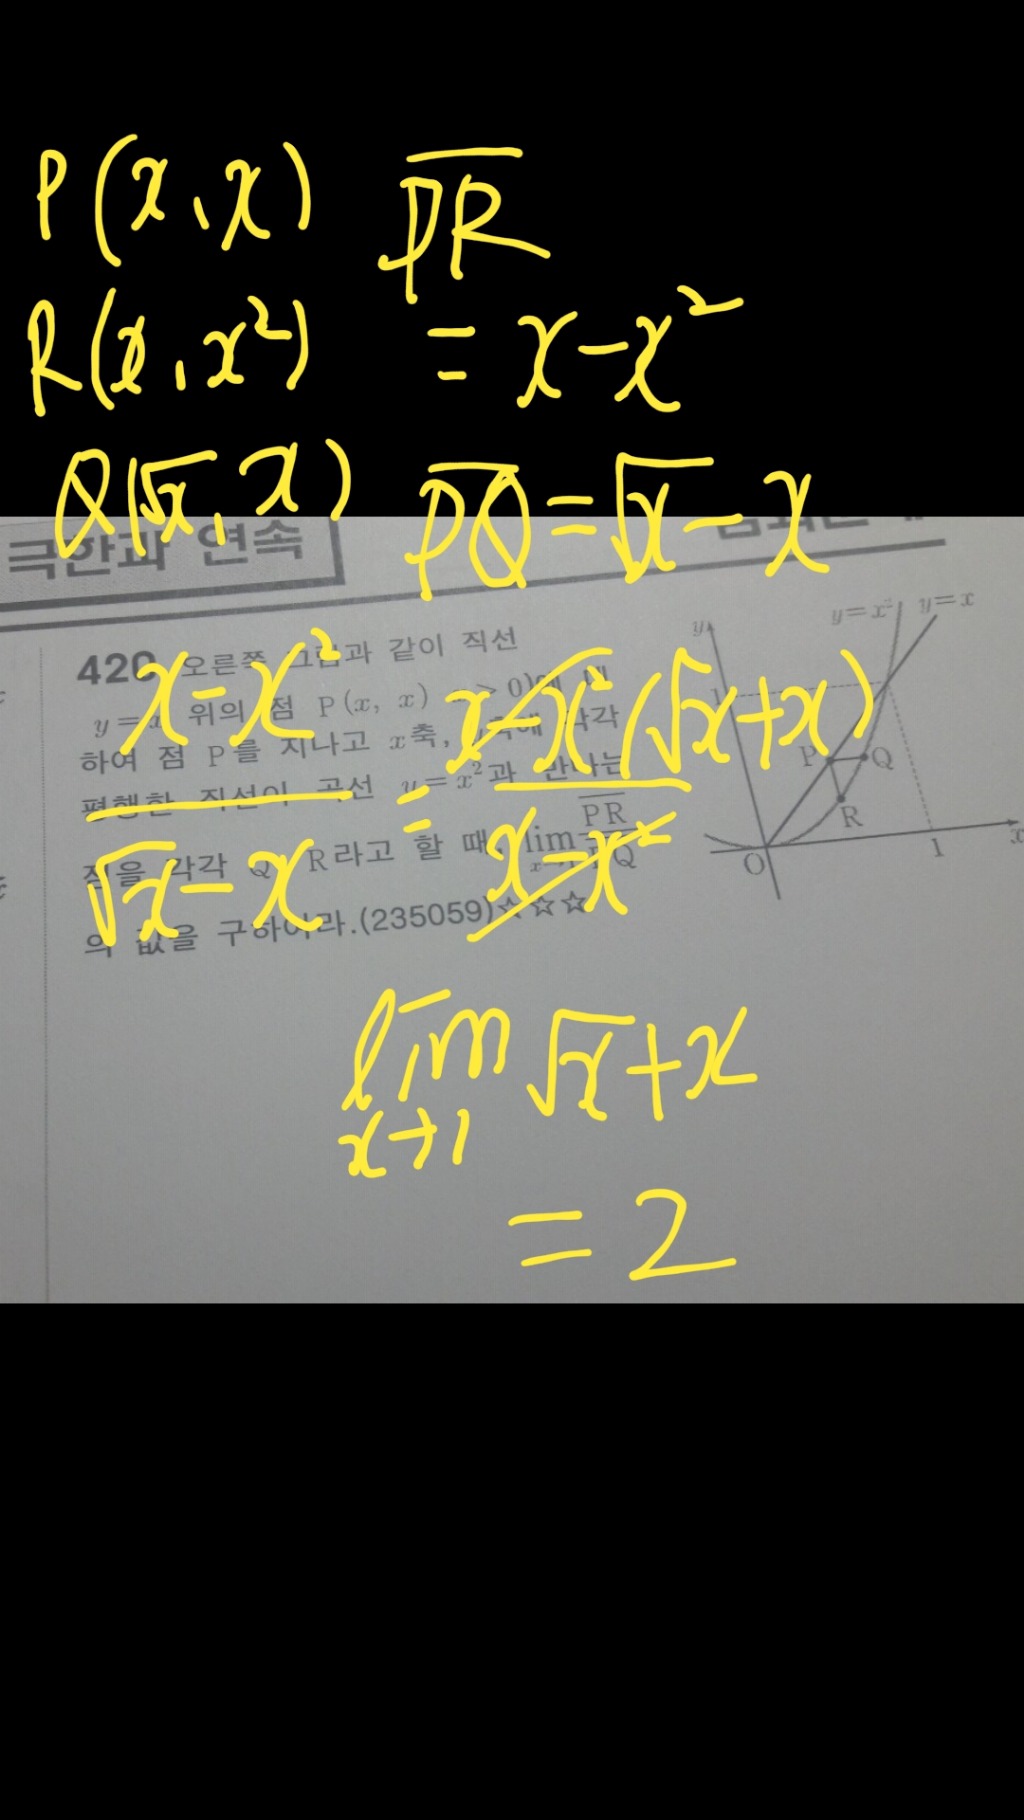 P(x, x) PR
R(x, x²) = x-x²
Q(√x, x) PQ = √x - x
극한과 연속
420 오른쪽 그림과 같이 직선
y=x 위의 점 P(x, x) x>0)에 대
하여 점 P를 지나고 x축, y축에 각각
평행한 직선이 곡선 y=x²과 만나는
점을 각각 Q R라고 할 때, lim PR/PQ
의 값을 구하여라.(235059)☆☆☆
y=x² y=x
y
1
P Q
R
O 1 x
x-x²/√x-x = x-x²(√x+x)/x-x²
lim x→1 √x+x
= 2